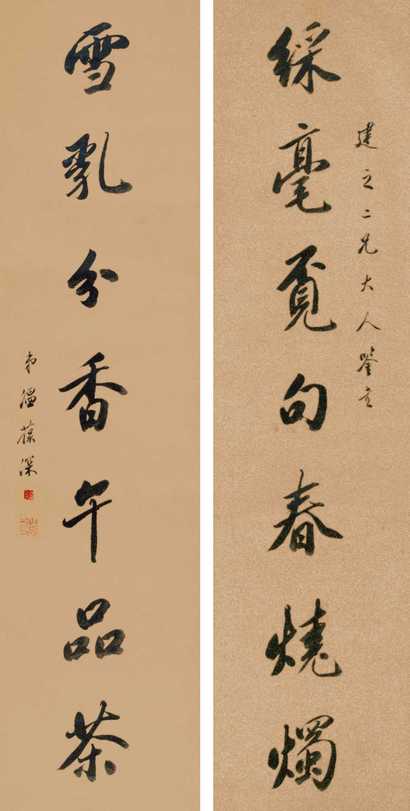 綵毫覓句春燒燭
建之二兄大人鑒之
雪乳分香午品茶
弟溫葆深